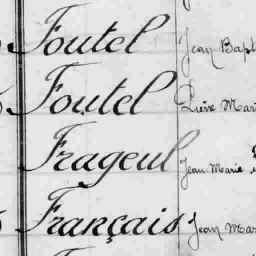 Foutel Jean Bapt
Foutel Pierre Mari
Frageul Jean Marie
Français Jean Mar